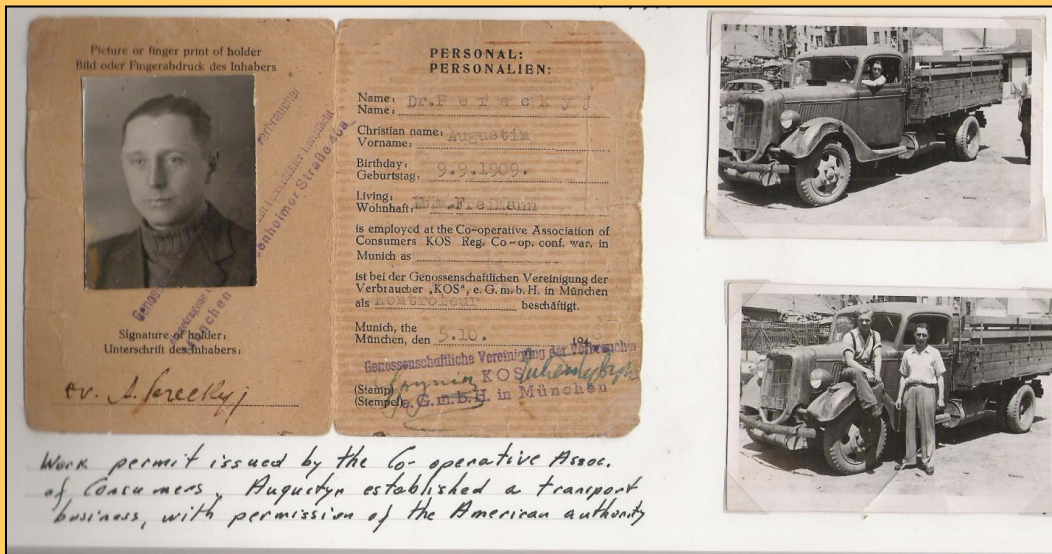 Picture or finger print of holder
Bild oder Fingerabdruck des Inhabers
Signature of holder:
Unterschrift des Inhabers:
PERSONAL:
PERSONALIEN:
Name: Dr.Pereckyj
Name:
Christian name: Augustin
Vorname:
Birthday: 9.9.1909.
Geburtstag:
Living:
Wohnhaft: Mün.Freimann
is employed at the Co-operative Association of
Consumers KOS Reg. Co-op. conf. war. in
Munich as
ist bei der Genossenschaftlichen Vereinigung der
Verbraucher „KOS", e. G. m. b. H. in München
als Kontroleur beschäftigt.
Munich, the
München, den 5.10. 194
Genossenschaftliche Vereinigung der Verbraucher
(Stamp) KOS
(Stempel) e. G. m. b. H. in München
Work permit issued by the Co-operative Assoc.
of Consumers. Augustyn established a transport
business, with permission of the American authority